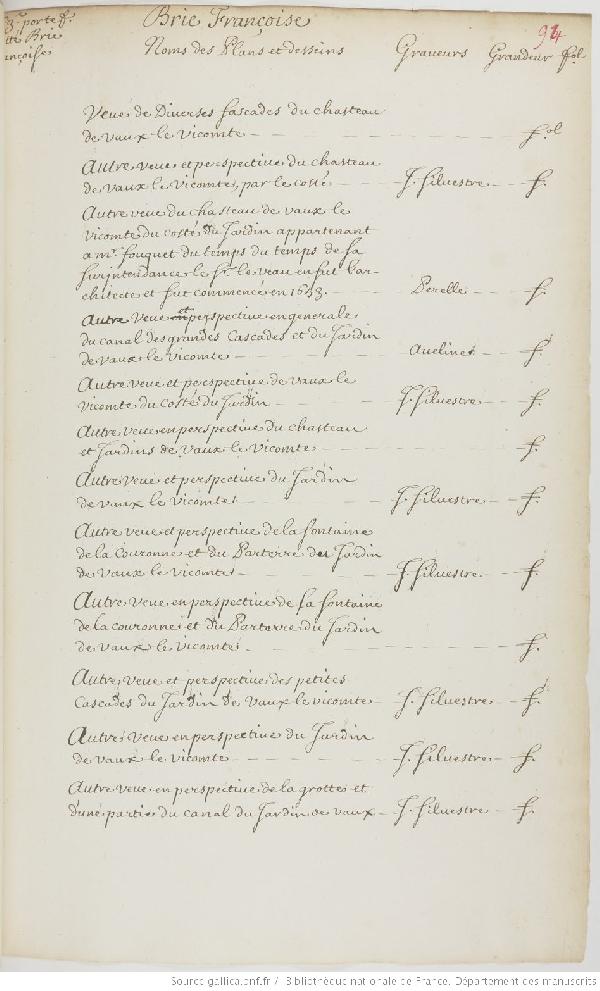 3.e porte f.
Brie
ançoise
Brie Françoise
94
Noms des Plans et desseins Graveurs Grandeur fol
Veue de Diverses fascades du chasteau
de vaux le vicomte - - fol
Autre veue et perspective du chasteau
de vaux le vicomte, par le costé - J. silvestre - f.
Autre veue du chasteau de vaux le
vicomte du costé du Jardin appartenant
a mr. fouquet du temps du temps de sa
surjntendance le Sr. le veau en fut l'ar-
chitecte et fut commencé en 1653. - Perelle - f.
Autre veue et perspective en generale
du canal des grandes Cascades et du Jardin
de vaux le vicomte - - Aveline - f.
Autre veue et perspective de vaux le
vicomte du costé du Jardin - J. silvestre - f.
Autre veue en perspective du chasteau
et Jardins de vaux le vicomte - f.
Autre veue et perspective du Jardin
de vaux le vicomte - J. silvestre - f.
Autre veue et perspective de la fontaine
de la Couronne et du Parterre du Jardin
de vaux le vicomte - J. silvestre. - f.
Autre veue en perspective de la fontaine
de la couronne et du Parterre du Jardin
de vaux le vicomte. - f.
Autre veue et perspective des petites
Cascades du Jardin de vaux le vicomte - J. silvestre - f.
Autre veue en perspective du Jardin
de vaux le vicomte - J. silvestre - f.
Autre veue en perspective de la grotte et
d'une partie du canal du Jardin de vaux - J. silvestre - f.
Source gallica.bnf.fr / Bibliothèque nationale de France. Département des manuscrits